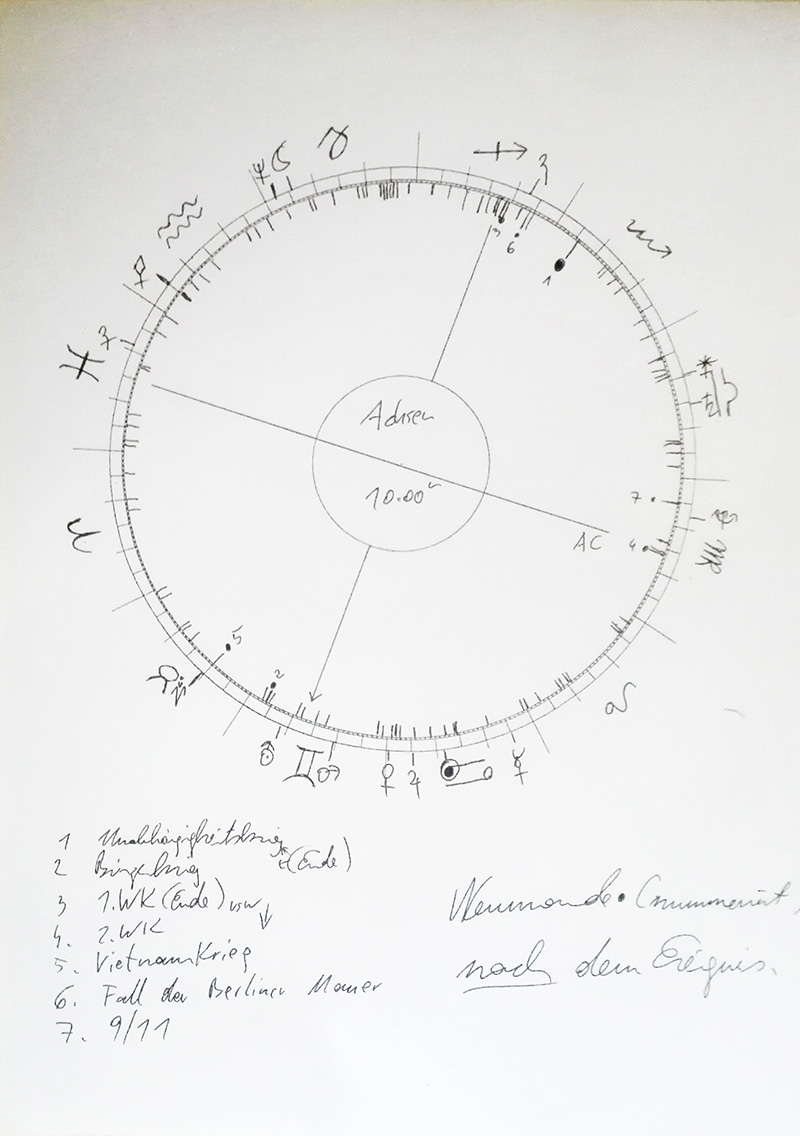 3
6
1
Achsen
10.00
7
AC
4
5
2
1 Unabhängigkeitskrieg
2 Bürgerkrieg (Ende)
3 1.WK (Ende) usw
4. 2.WK
5. Vietnam Krieg
6. Fall der Berliner Mauer
7. 9/11
Neumonde • (nummeriert,
nach dem Ereignis.